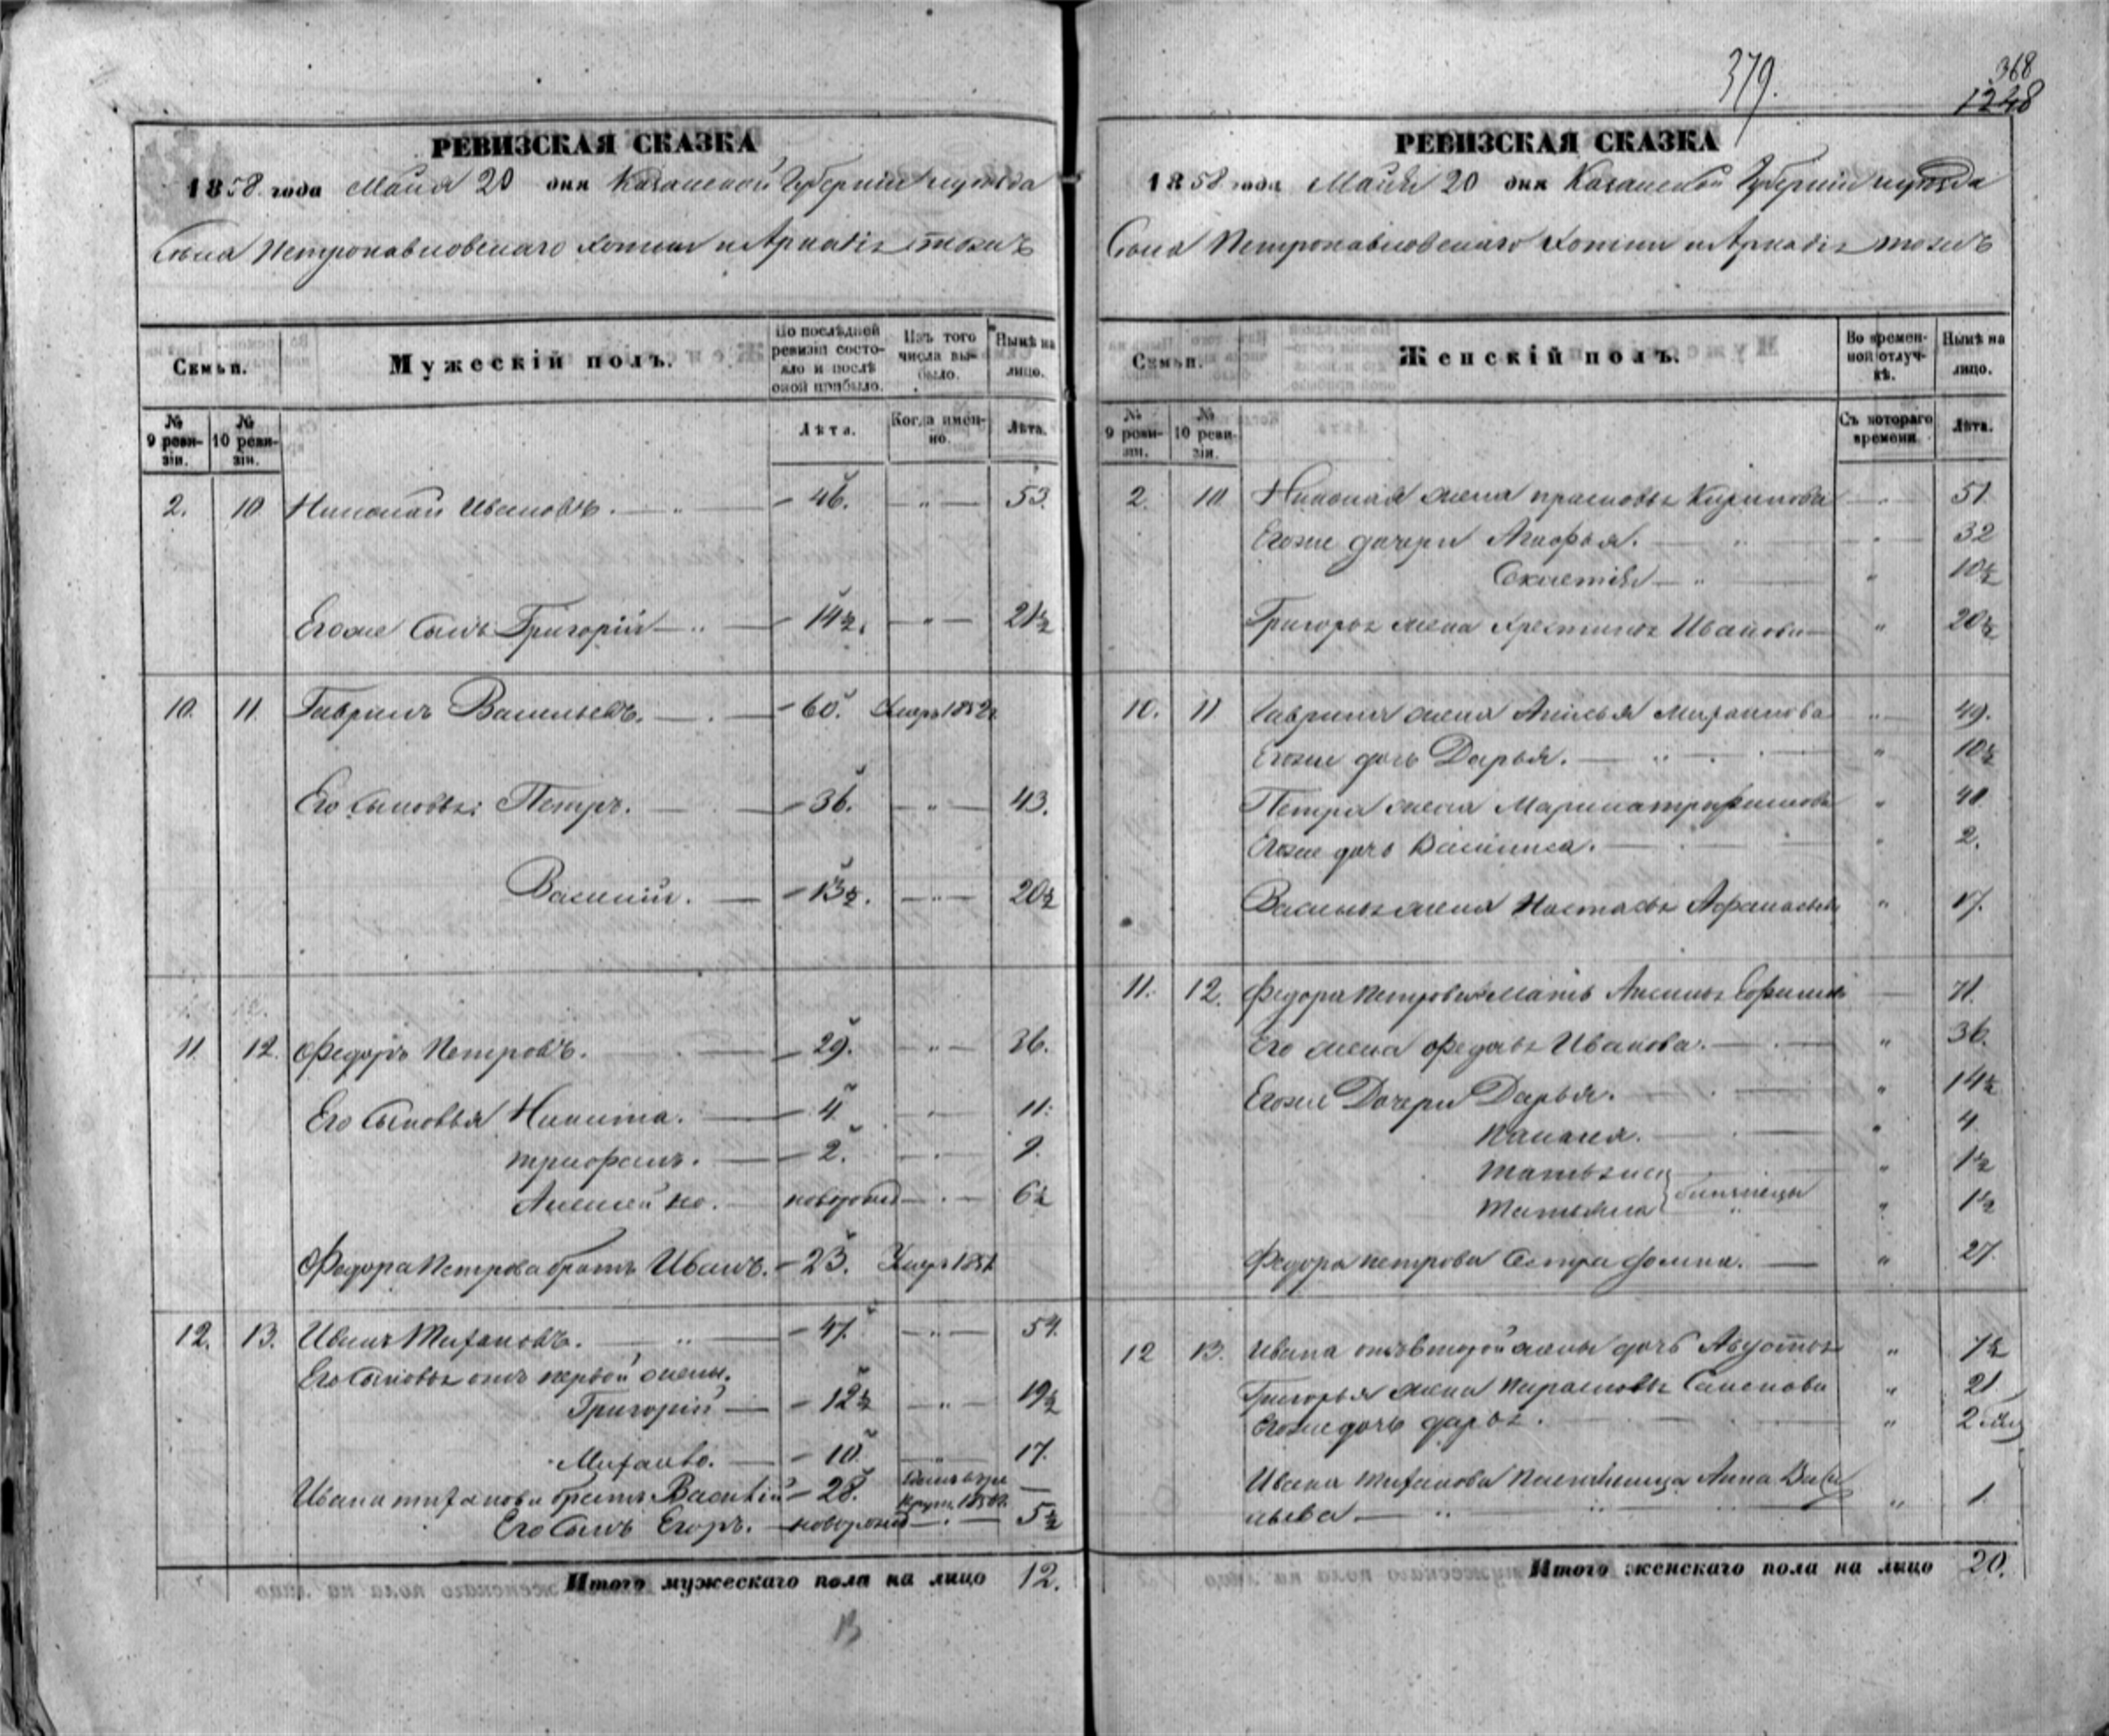 379.
368
1248
РЕВИЗСКАЯ СКАЗКА
1858. года Маия 20 дня Казанской Губернии и уезда
Села Петропавловскаго Котни и Аркадія тожъ
Семьи.
Мужескій полъ.
По послѣдней ревизіи состояло и послѣ оной прибыло.
Изъ того числа выбыло.
Нынѣ на лицо.
№ 9 ревизіи.
№ 10 ревизіи.
Лѣта.
Когда именно.
Лѣта.
2. 10 Николай Ивановъ. — 46. — " — 53.
Егоже Сынъ Григорій — " — 14½. — " — 21½
10. 11. Гаврилъ Васильевъ. — 60. Умеръ 1852
Его Сыновья: Петръ. — 36. — " — 43.
Василій. — 13½. — " — 20½
11. 12. Федоръ Петровъ. — 29. — " — 36.
Его Сыновья Никита. — 4. " 11.
Трифонъ. — 2. — 9.
Алексей но. — новорожд — " — 6½
Федора Петрова братъ Иванъ. — 23. Умеръ 185
12. 13. Иванъ Михайловъ. — " — 47. — " — 54.
Его Сыновья отъ первой жены.
Григорій — 12½ — " — 19½
Михайло. — 10 " 17.
Ивана Михайлова братъ Василій — 28. —
Его Сынъ Егоръ. — новорожд — " — 5½
Итого мужескаго пола на лицо 12.
РЕВИЗСКАЯ СКАЗКА
1858 года Маия 20 дня Казанской Губернии и уезда
Села Петропавловскаго Котни и Аркадія тожъ
Семьи.
Женскій полъ.
Во временной отлучкѣ.
Нынѣ на лицо.
№ 9 ревизіи.
№ 10 ревизіи.
Съ котораго времени
Лѣта.
2. 10 Николая жена прасковья Кирилова " 51.
Егоже дочери Агафья. — " " 32
" 10½
Григорья жена Хрестинья Иванова " 20½
10. 11 Гаврила жена Анисья Михаилова " 49.
Егоже дочь Дарья. — " " 10½
Петра жена Марина трофимова " 40
Егоже дочь Василиса. — " 2.
Василья жена Настасья Афанасьева " 17.
11. 12. Федора Петрова Мать Аксинья — 71.
Его жена Федосья Иванова. — " 36.
Егоже Дочери Дарья. — " 14½
Палагея. — " 4.
" 1½
Татьяна близнецы " 1½
Федора петрова Сестра — " 27.
12 13. Ивана отъ второй жены дочь Августа " 7½
Григорья жена Парасковья Семенова " 21
Егоже дочь дарья. — " 2
Ивана Михайлова Племянница Анна Васи
льева — " " 1.
Итого женскаго пола на лицо 20.